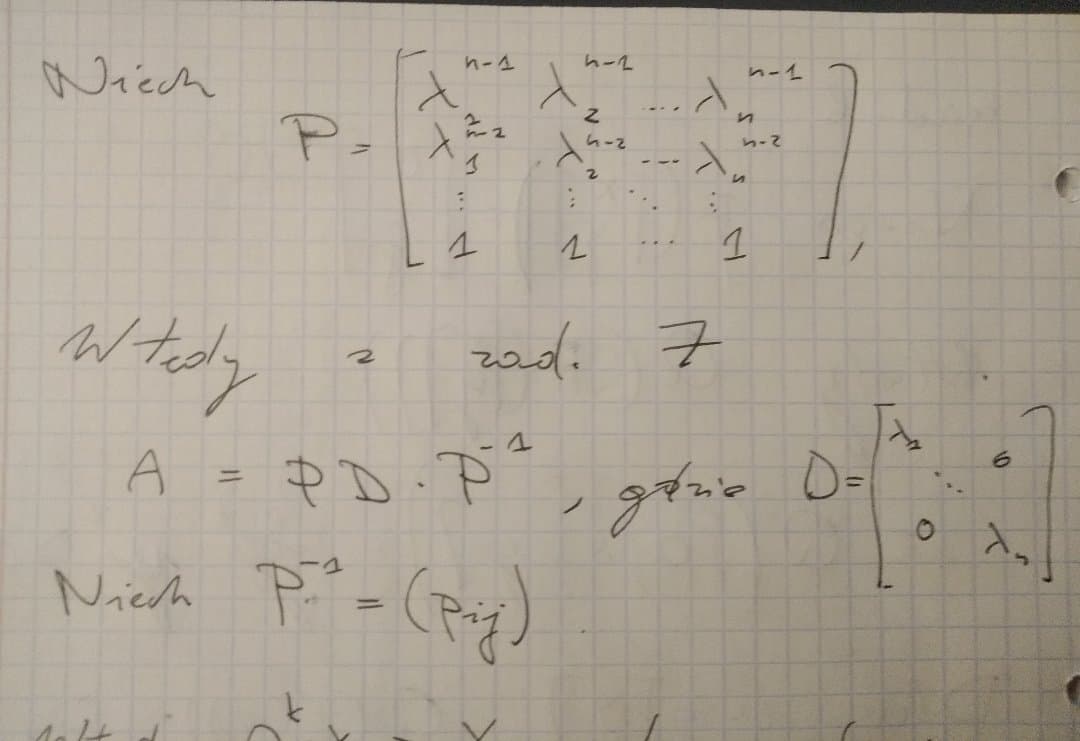 Niech
P = [ λ_1^{n-1} λ_2^{n-1} .... λ_n^{n-1}
λ_1^{n-2} λ_2^{n-2} --- λ_n^{n-2}
⋮ ⋮ ⋱ ⋮
1 1 ... 1 ] ,
Wtedy z zad. 7
A = P D · P^{-1} , gdzie D = [ λ_1 ⋱ 0 0 λ_n ]
Niech P^{-1} = (p_{ij}) .